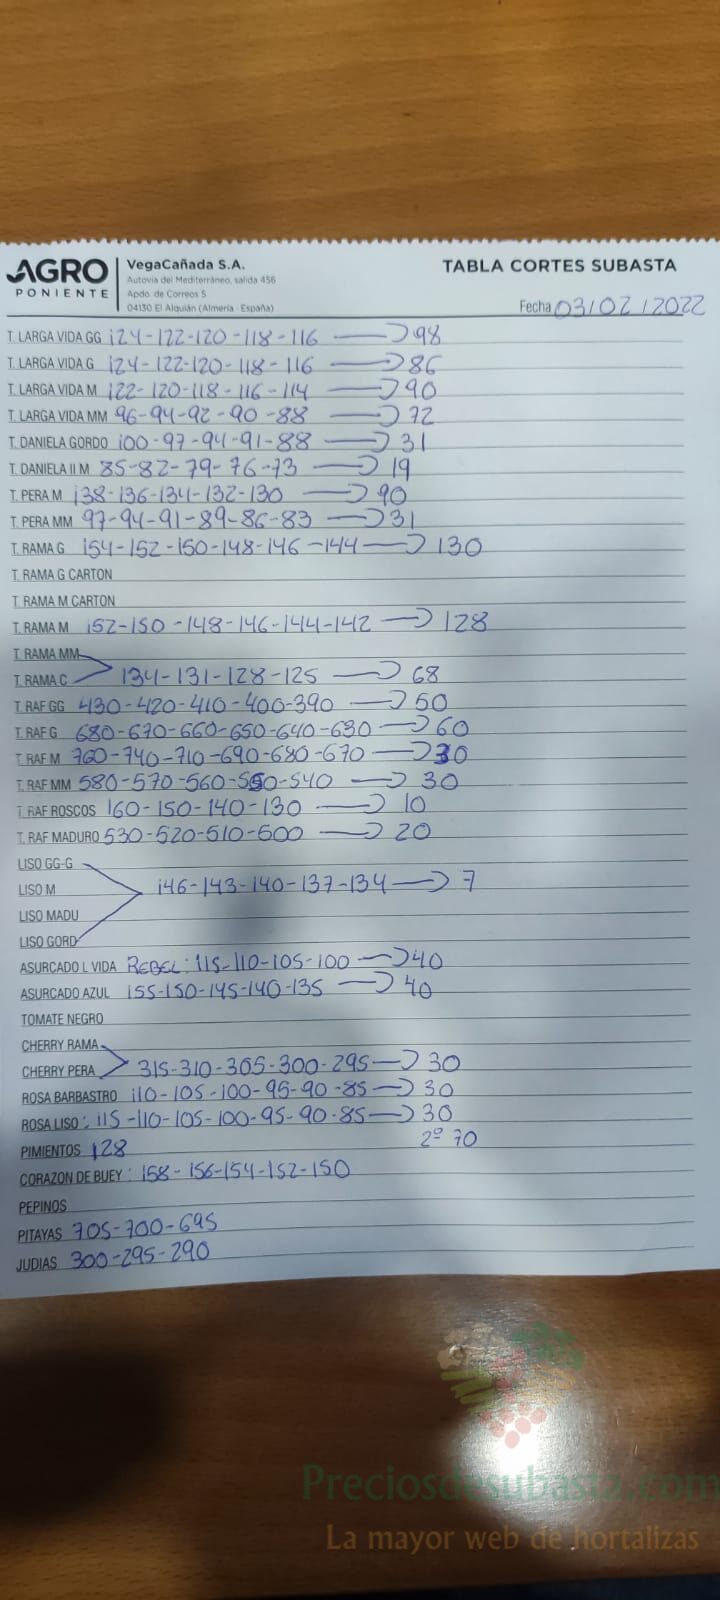 AGRO
PONIENTE
VegaCañada S.A.
Autovía del Mediterráneo, salida 456
Apdo. de Correos 5
04130 El Alquián (Almería - España)
TABLA CORTES SUBASTA
Fecha 03/02/2022
T. LARGA VIDA GG 124-122-120-118-116 → 98
T. LARGA VIDA G 124-122-120-118-116 → 86
T. LARGA VIDA M 122-120-118-116-114 → 90
T. LARGA VIDA MM 96-94-92-90-88 → 72
T. DANIELA GORDO 100-97-94-91-88 → 31
T. DANIELA II M 85-82-79-76-73 → 19
T. PERA M 138-136-134-132-130 → 90
T. PERA MM 97-94-91-89-86-83 → 31
T. RAMA G 154-152-150-148-146-144 → 130
T. RAMA G CARTON
T. RAMA M CARTON
T. RAMA M 152-150-148-146-144-142 → 128
T. RAMA MM
T. RAMA C 134-131-128-125 → 68
T. RAF GG 430-420-410-400-390 → 50
T. RAF G 680-670-660-650-640-630 → 60
T. RAF M 760-740-710-690-680-670 → 30
T. RAF MM 580-570-560-550-540 → 30
T. RAF ROSCOS 160-150-140-130 → 10
T. RAF MADURO 530-520-510-500 → 20
LISO GG-G
LISO M 146-143-140-137-134 → 7
LISO MADU
LISO GORD
ASURCADO L VIDA REBEL: 115-110-105-100 → 40
ASURCADO AZUL 155-150-145-140-135 → 40
TOMATE NEGRO
CHERRY RAMA
CHERRY PERA 315-310-305-300-295 → 30
ROSA BARBASTRO 110-105-100-95-90-85 → 30
ROSA LISO: 115-110-105-100-95-90-85 → 30
PIMIENTOS 128 2º 70
CORAZON DE BUEY: 158-156-154-152-150
PEPINOS
PITAYAS 705-700-695
JUDIAS 300-295-290
Preciosdesubasta.com
La mayor web de hortalizas